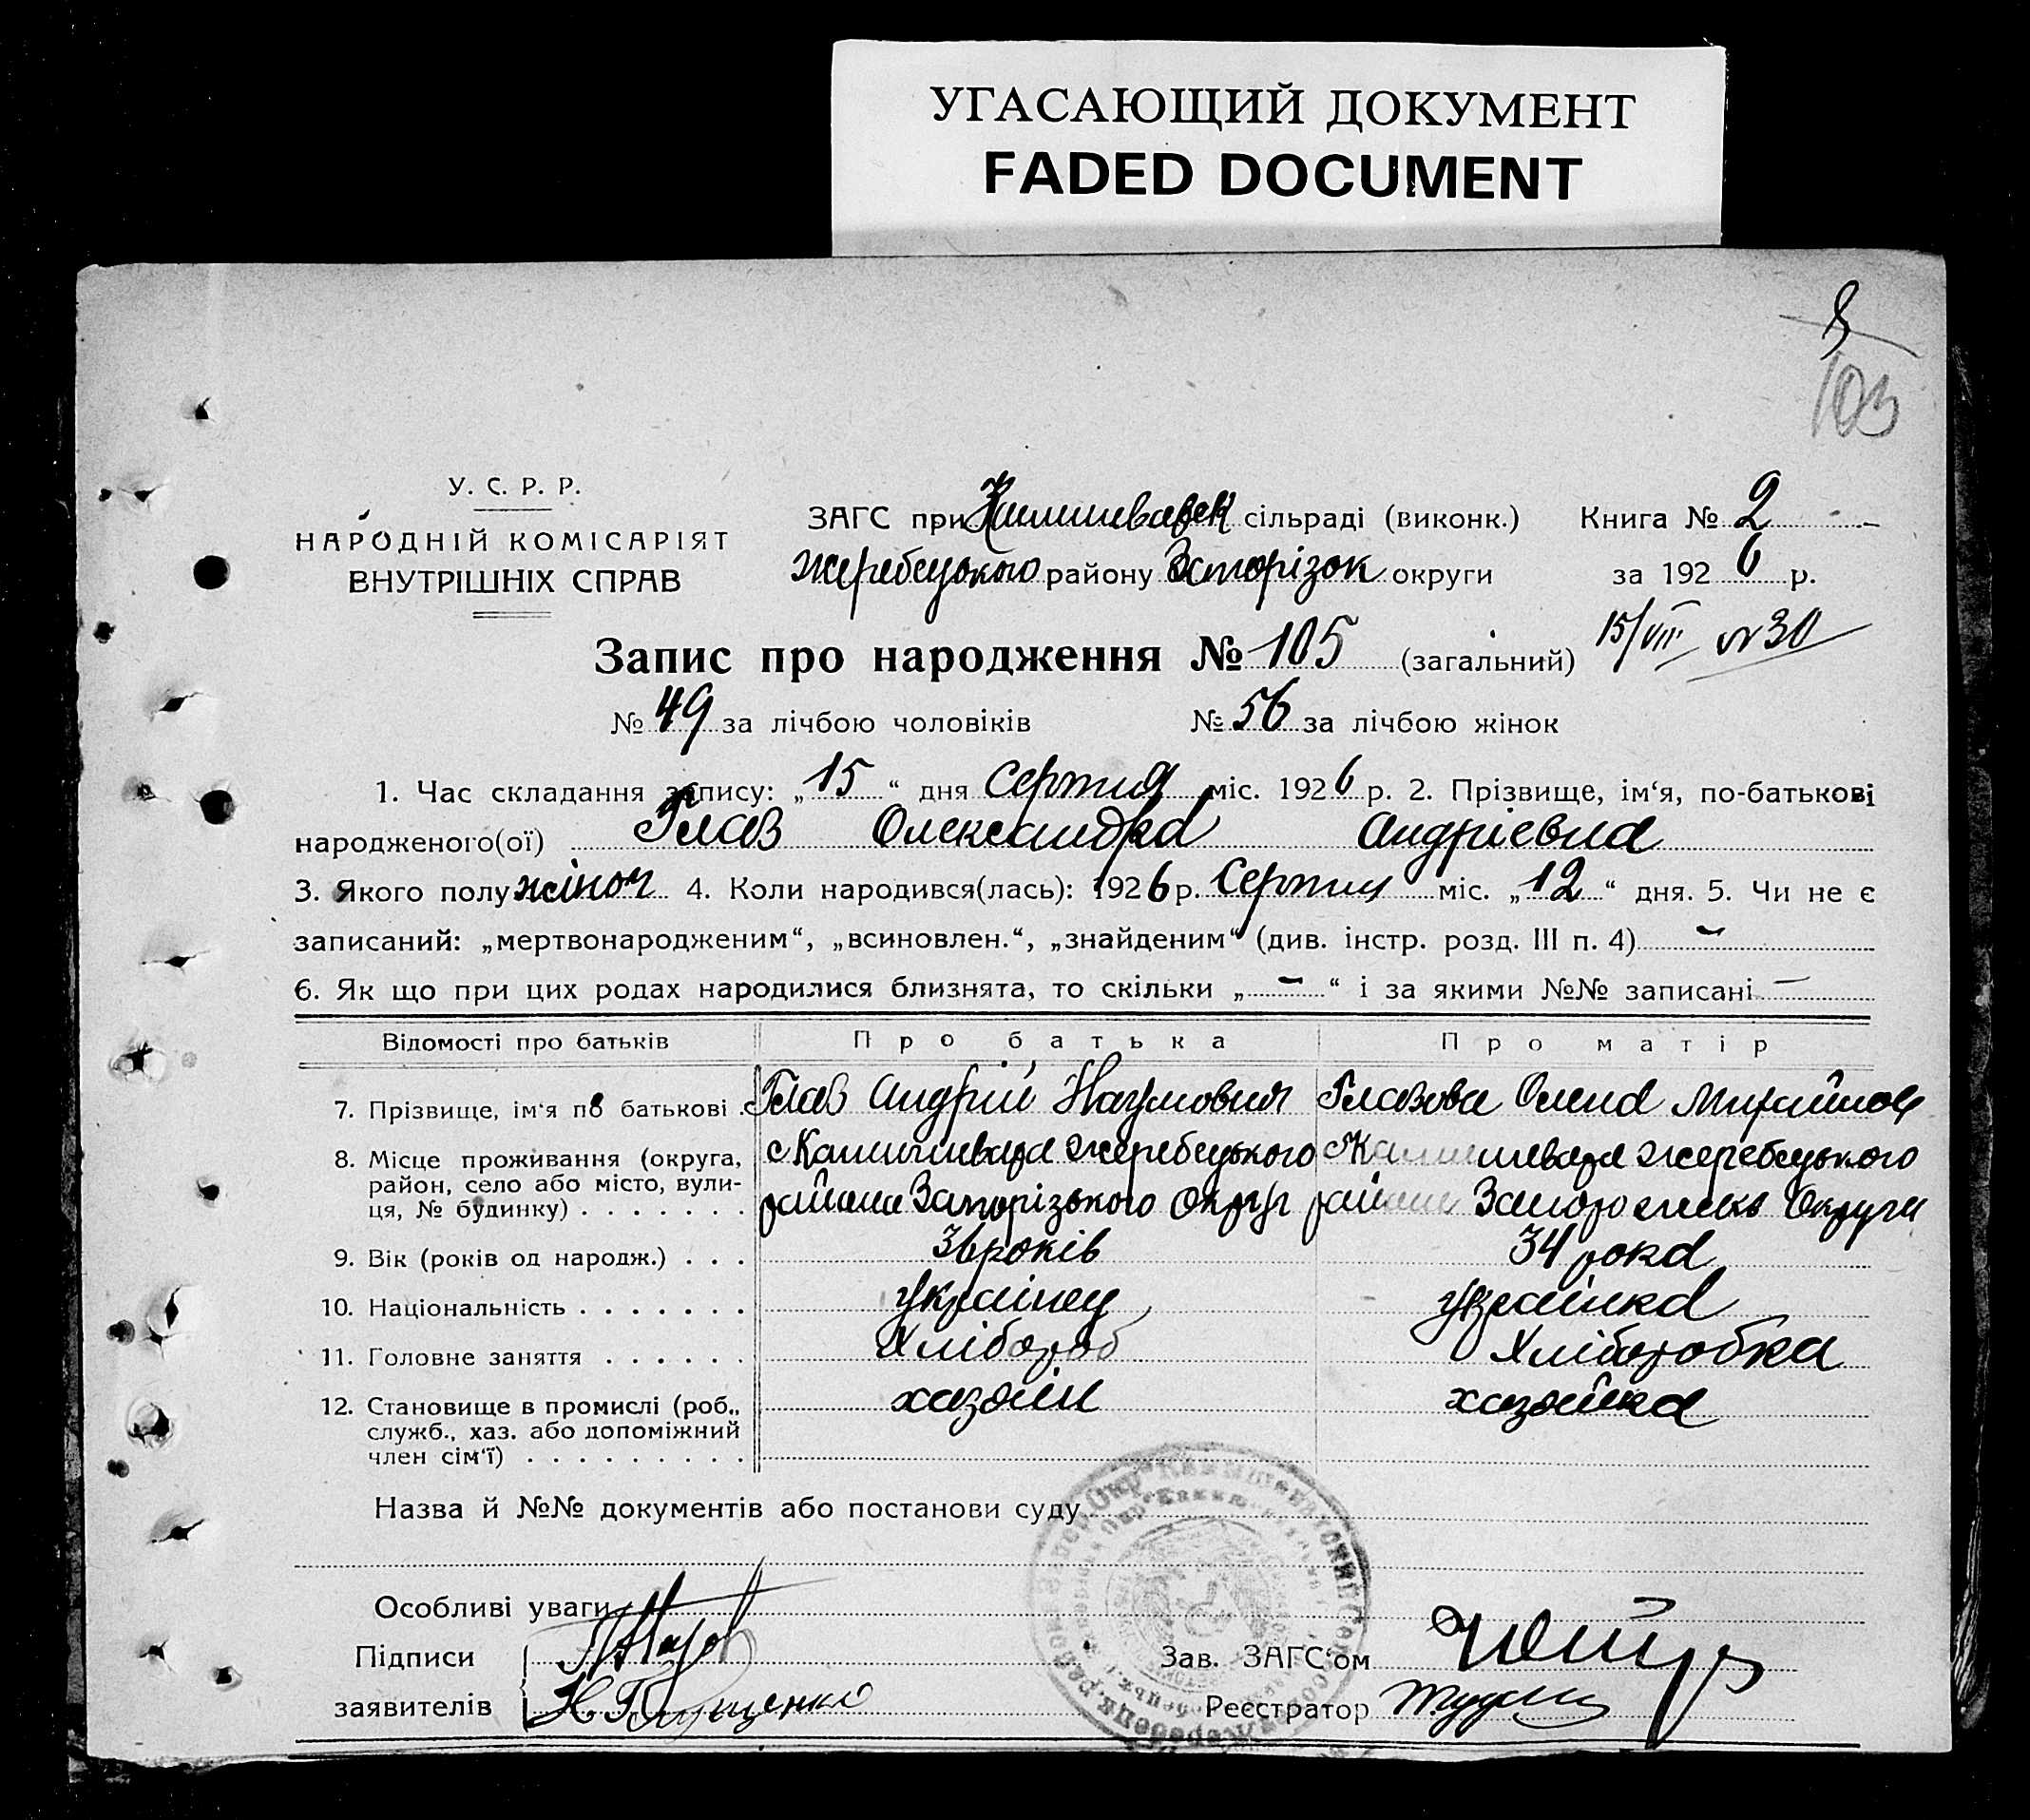 УГАСАЮЩИЙ ДОКУМЕНТ
FADED DOCUMENT
8
103
У. С. Р. Р.
НАРОДНІЙ КОМІСАРІЯТ
ВНУТРІШНІХ СПРАВ
ЗАГС при сільраді (виконк.) Книга № 2
Жеребецького району Запорізок округи за 1926 р.
Запис про народження № 105 (загальний) 15/VIII №30
№ 49 за лічбою чоловіків № 56 за лічбою жінок
1. Час складання запису: „15“ дня Серпня міс. 1926 р. 2. Прізвище, ім‘я, по-батькові
народженого(ої) Глаз Олександра Андрієвна
3. Якого полу жіноч 4. Коли народився(лась): 1926 р. Серпня міс. „12“ дня. 5. Чи не є
записаний: „мертвонародженим“, „всиновлен.“, „знайденим“ (див. інстр. розд. III п. 4) -
6. Як що при цих родах народилися близнята, то скільки „-“ і за якими №№ записані -
Відомості про батьків Про батька Про матір
7. Прізвище, ім‘я по батькові . Глаз Андрій Наумович Глазова Олена
8. Місце проживання (округа, с Камишеваха Жеребецького с Камишеваха Жеребецького
район, село або місто, вули-
ця, № будинку) . . . . . . . района Запорізького Округ района Запорожськ Округи
9. Вік (років од народж.) . . . 36 років 34 рока
10. Національність . . . . . . . українец українка
11. Головне заняття . . . . . . Хлібороб Хліборобка
12. Становище в промислі (роб., хазяїн хазяйка
служб., хаз. або допоміжний
член сім‘ї) . . . . . . . . .
Назва й №№ документів або постанови суду
Особливі уваги
Підписи
заявителів
Зав. ЗАГС‘ом
Реєстратор